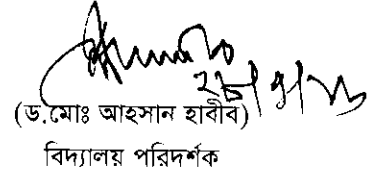 (ড.মোঃ আহসান হাবীব)
বিদ্যালয় পরিদর্শক